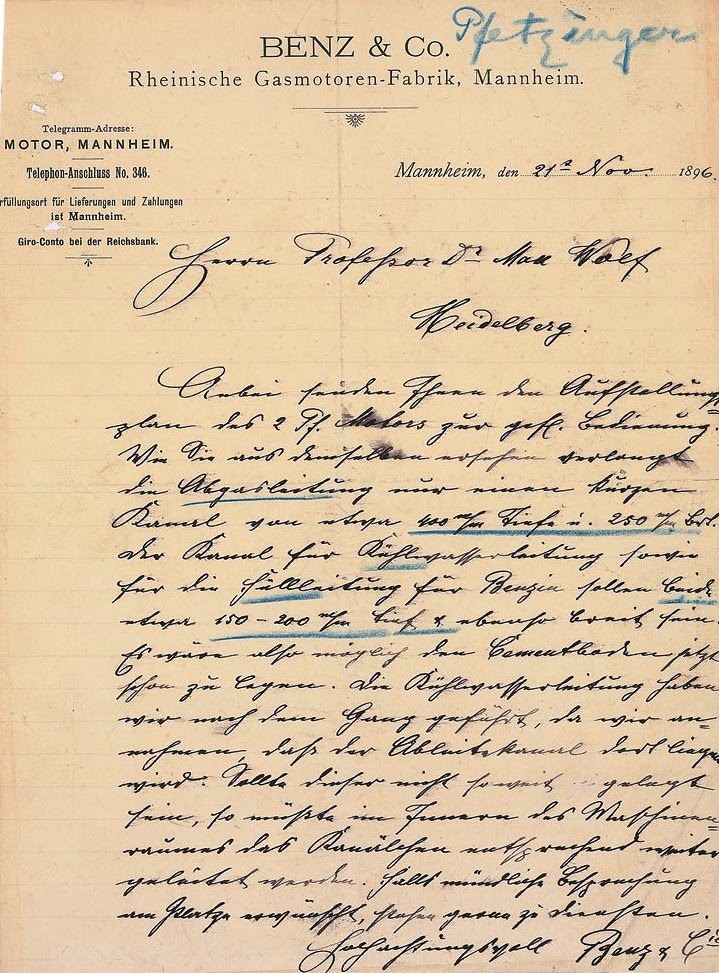 Pfetzinger
BENZ & Co.
Rheinische Gasmotoren-Fabrik, Mannheim.
Telegramm-Adresse:
MOTOR, MANNHEIM.
Telephon-Anschluss No. 346.
rfüllungsort für Lieferungen und Zahlungen
ist Mannheim.
Giro-Conto bei der Reichsbank.
Mannheim, den 21t Nov. 1896.
Herrn Professor Dr Max Wolf
Heidelberg.
Anbei senden Ihnen den Aufstellungs=
plan des 2 Pf. Motors zur gefl. Bedienung.
Wie Sie aus demselben ersehen verlangt
die Abgasleitung nur einen kurzen
Kanal von etwa 400 m/m Tiefe u. 250 m/m Brt.
Der Kanal für Kühlwasserleitung sowie
für die Füllleitung für Benzin sollen beide
etwa 150 - 200 m/m tief & ebenso breit sein.
Es wäre also möglich den Cementboden jetzt
schon zu legen. Die Kühlwasserleitung haben
wir nach dem Gang geführt, da wir an=
nahmen, daß der Ableitekanal dort liegen
wird. Sollte dieser nicht soweit gelegt
sein, so müßte im Innern des Maschinen=
raumes das Kanälchen entsprechend weiter
geleitet werden. Falls mündliche Besprechung
am Platze erwünscht, stehen gerne zu Diensten.
Hochachtungsvoll Benz & Cie